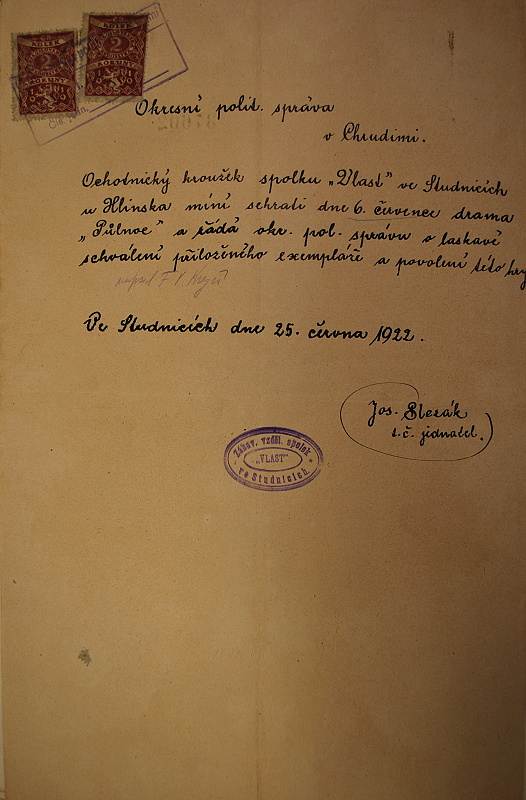 KOLEK
2
KORUNY
KOLEK
2
KORUNY
Okresní polit. správa
v Chrudimi.
Ochotnický kroužek spolku „Vlast" ve Studnicích
u Hlinska míní sehrati dne 6. červenec drama
„Půlnoc" a žádá okr. pol. správu o laskavé
schválení přiloženého exempláře a povolení této hry
napsal F. V.
Ve Studnicích dne 25. června 1922.
Jos. Slezák
t.č. jednatel.
Zábav. vzděl. spolek
„VLAST"
ve Studnicích.